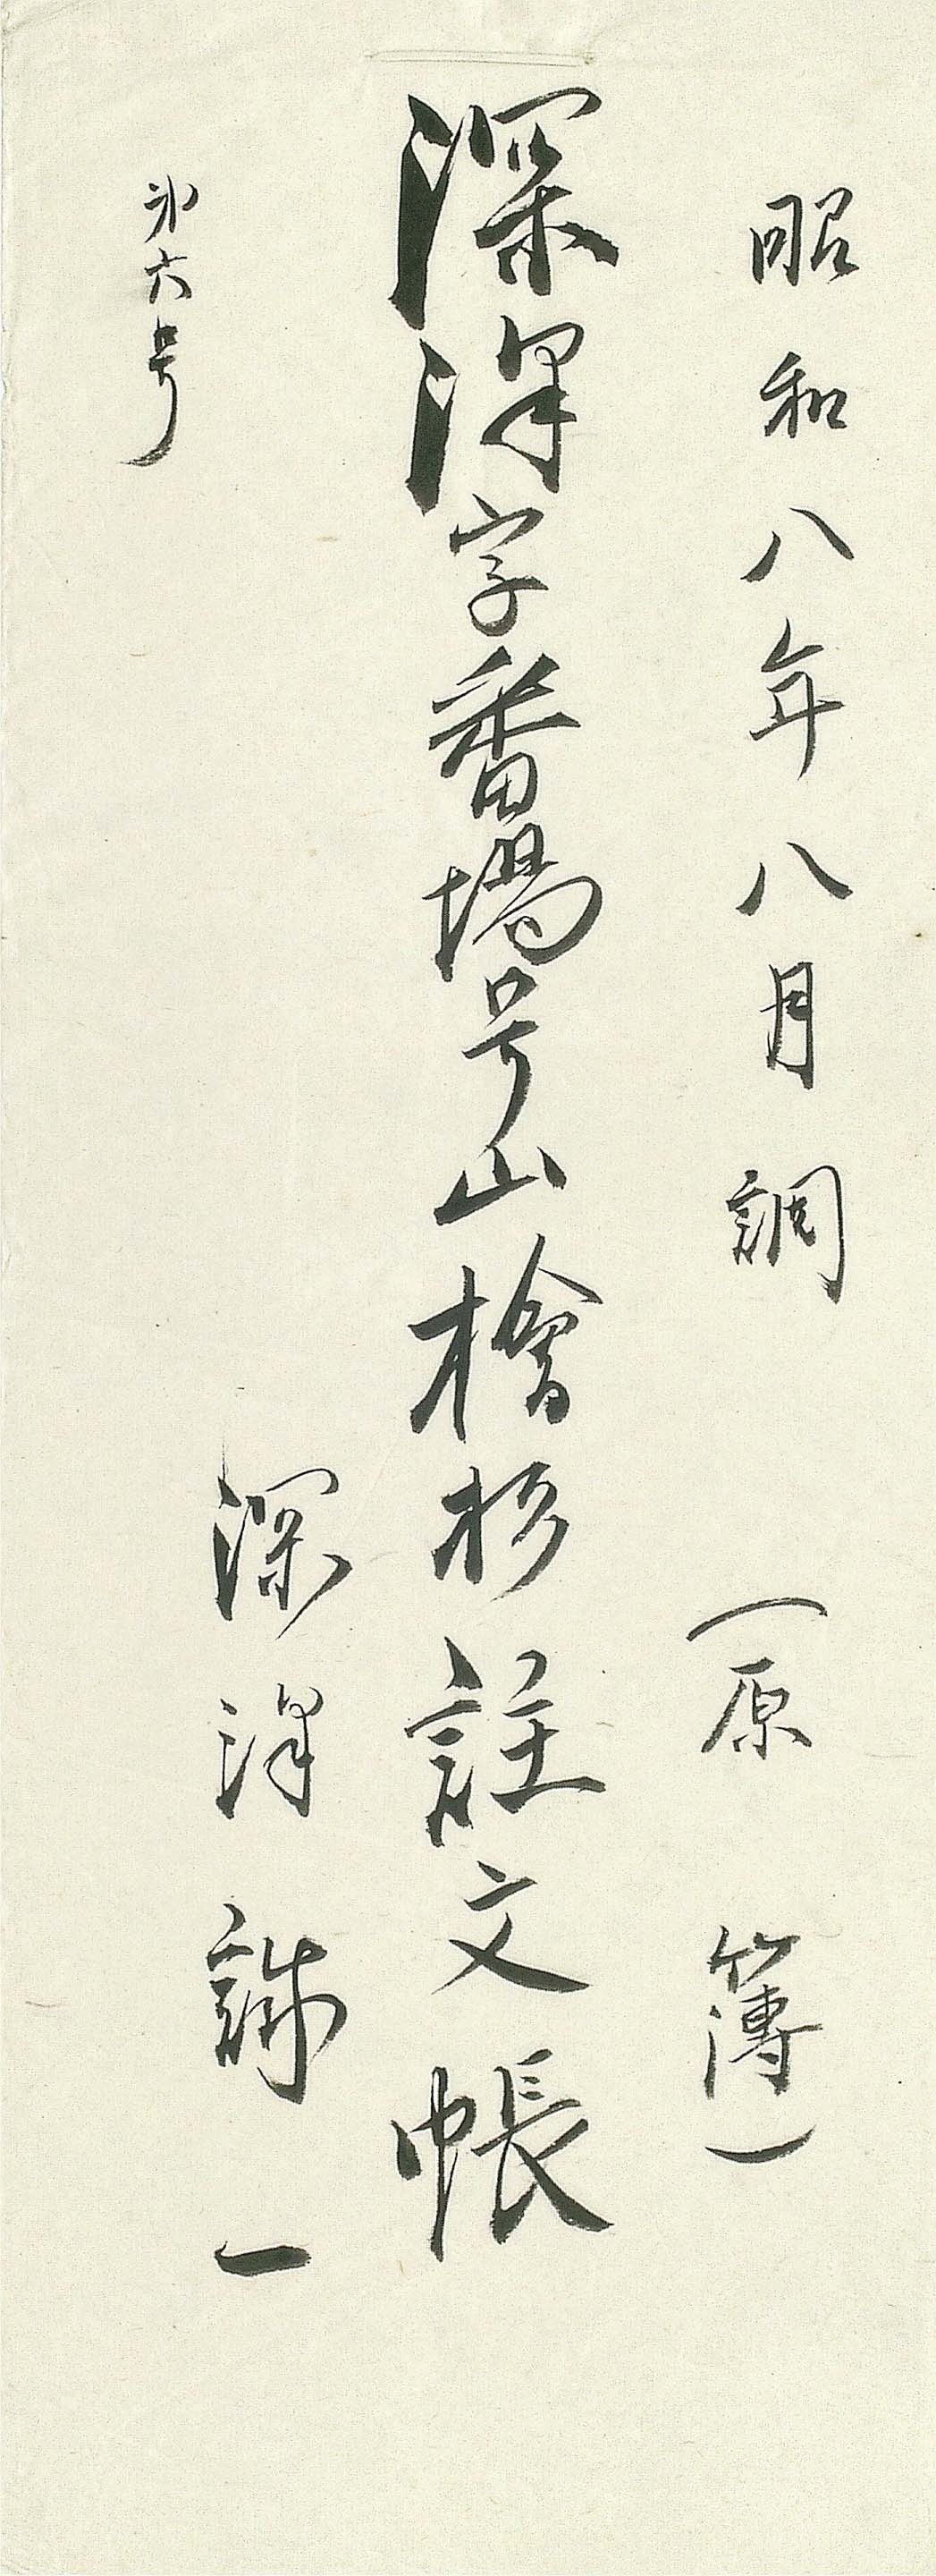 昭和八年八月調 (原簿)
深澤字番場号山檜杉註文帳
深澤誠一
第六号